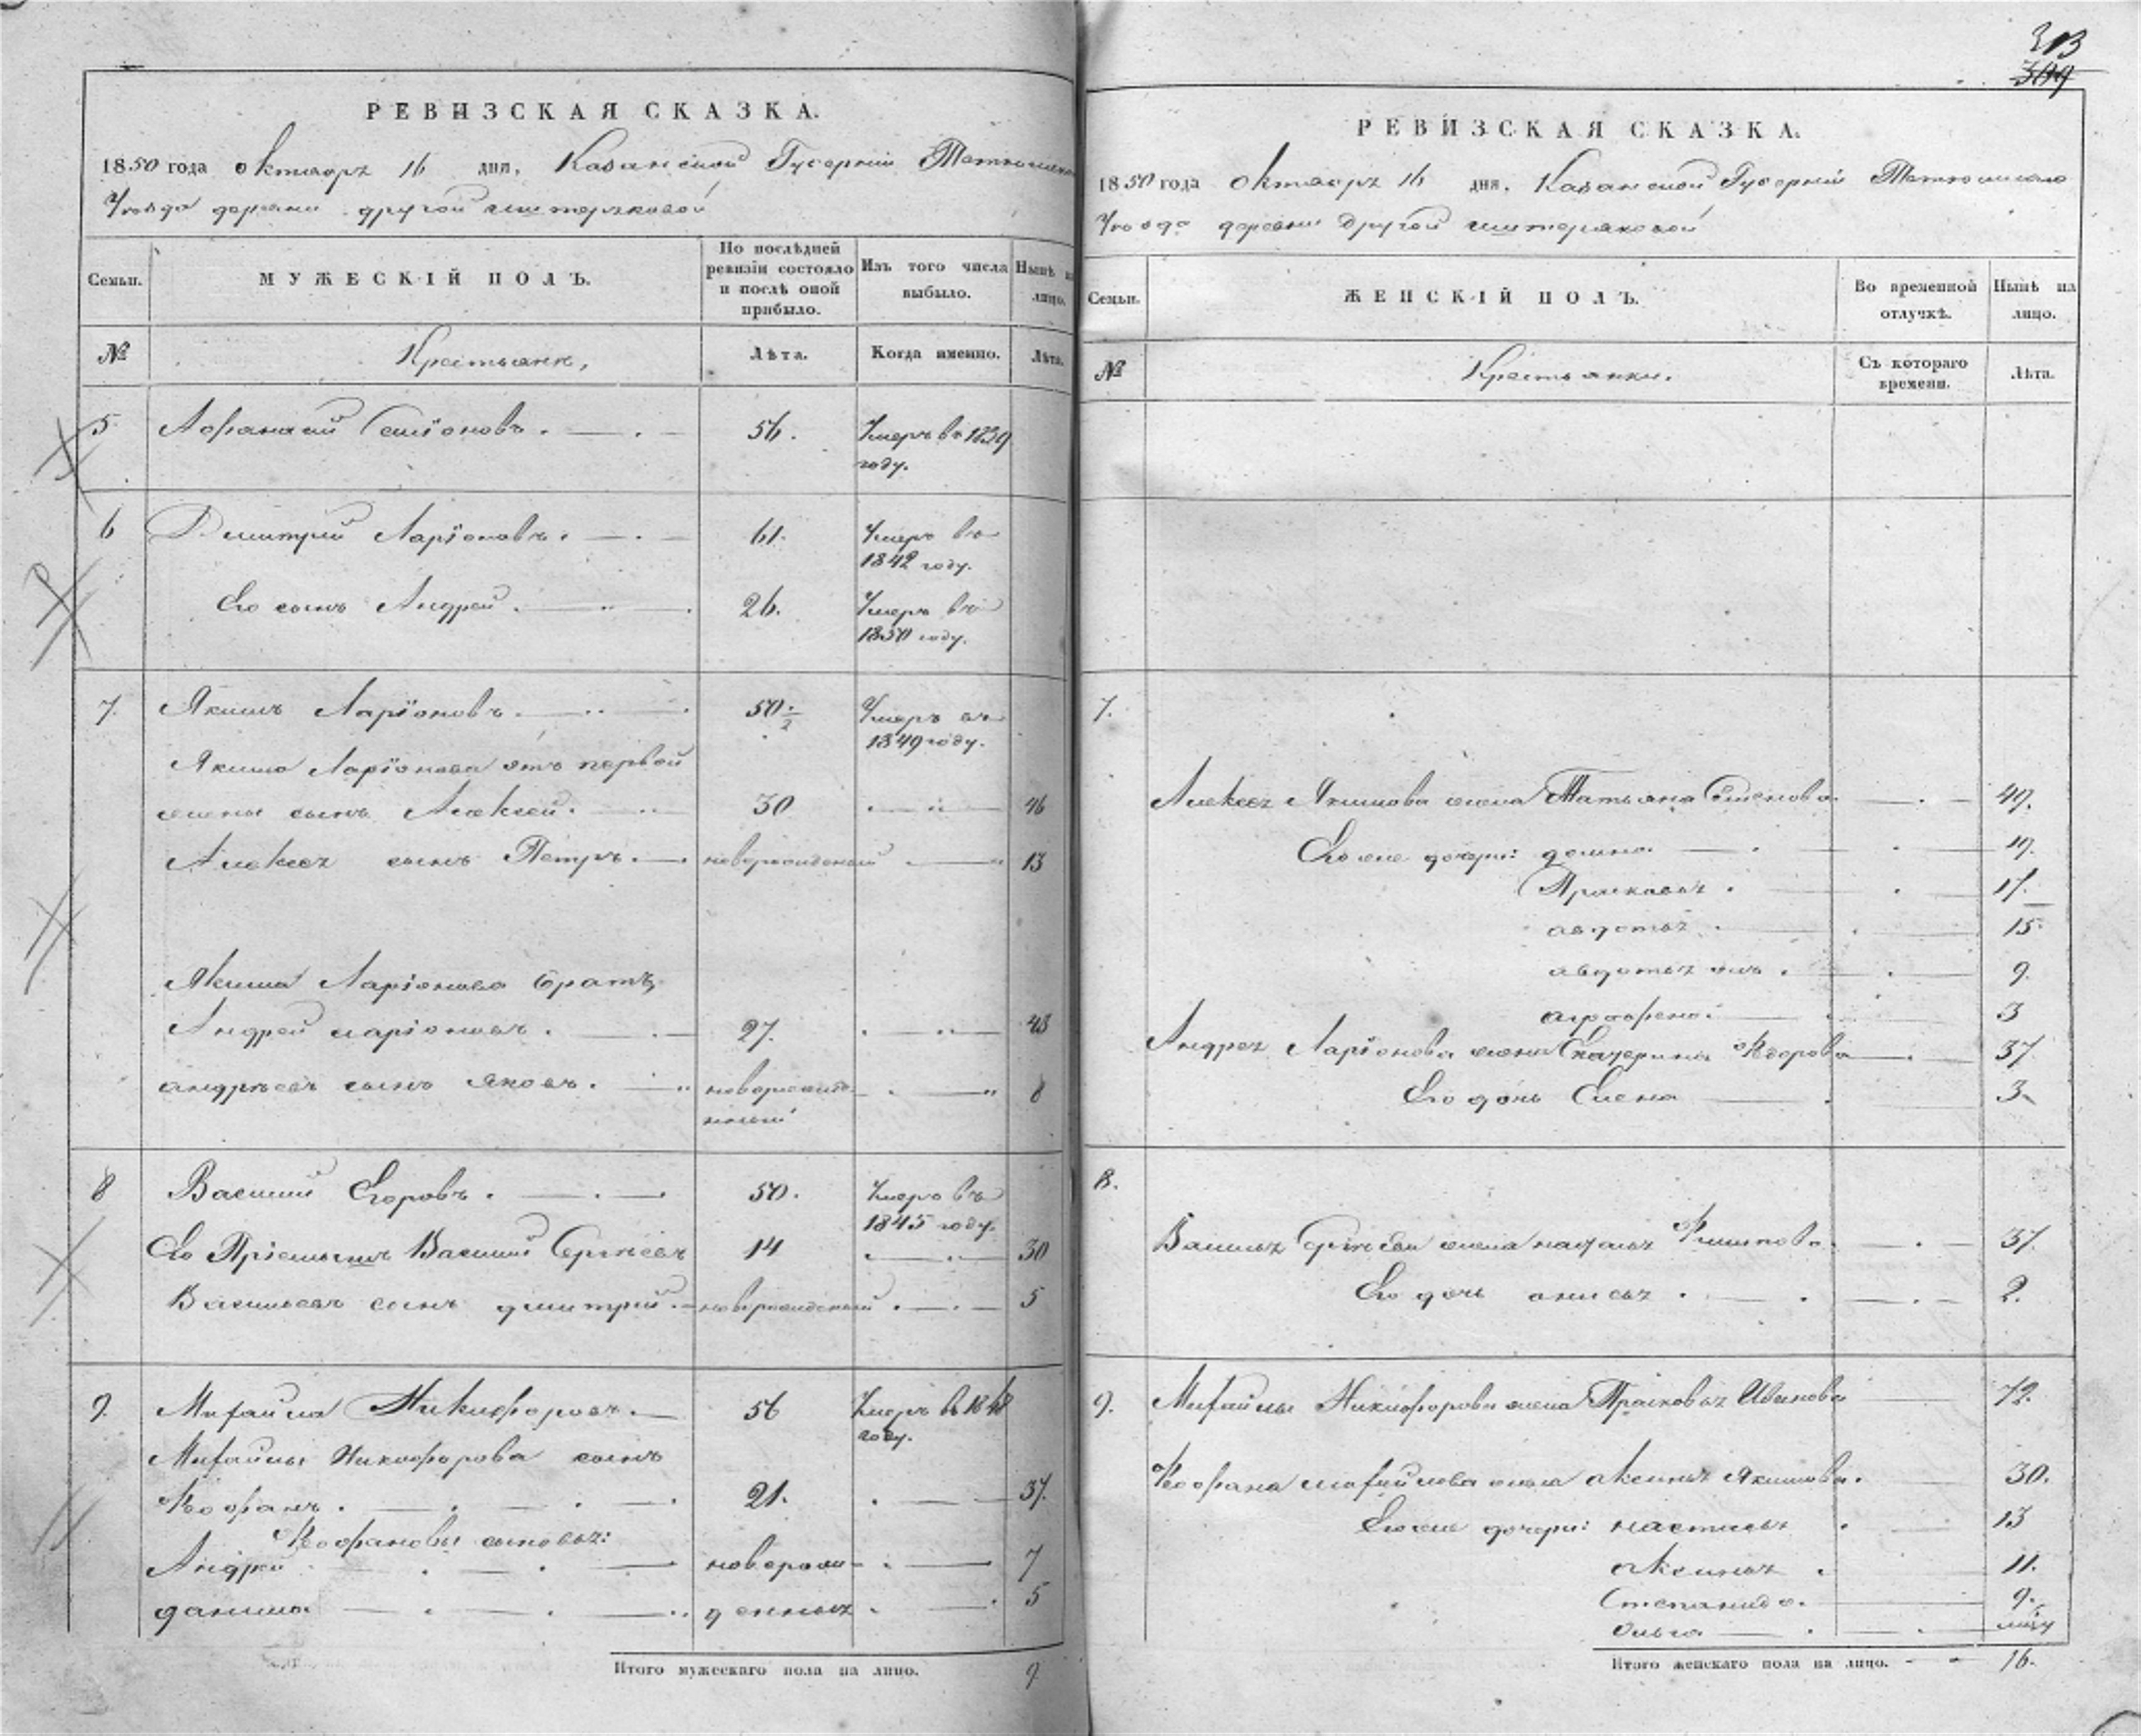 РЕВИЗСКАЯ СКАЗКА.
1850 года октября 16 дня, Казанской Губернии
Уезда деревни другой
Семьи.
МУЖЕСКІЙ ПОЛЪ.
По послѣдней ревизіи состояло и послѣ оной прибыло.
Изъ того числа выбыло.
Нынѣ на лицо.
№
Крестьяне,
Лѣта.
Когда именно.
Лѣта.
5 Афанасий Семіоновъ. 56. Умеръ въ 1839
году.
6 Дмитрий Ларіоновъ. 61. Умеръ въ
1842 году.
Его сынъ Андрей. 26. Умеръ въ
1850 году.
7. Якимъ Ларіоновъ. 50. Умеръ въ
1849 году.
Якима Ларіонова отъ первой
жены сынъ Алексей. 30 46
Алексея сынъ Петръ. новорожденный 13
Якима Ларіонова братъ,
Андрей Ларіоновъ. 27. 43
андрѣевъ сынъ Яковъ. новорожде-
нный 8
8 Василий Егоровъ. 50. Умеръ въ
1845 году.
Его Пріемышъ Василий Сергѣевъ 14 30
Васильевъ сынъ дмитрий. новорожденный 5
9. Михайла Никифоровъ. 56 Умеръ въ 1848
году.
Михайлы Никифорова сынъ
Феофанъ. 21. 37.
Феофановы сыновья:
Андрей новорож- 7
данила денныя 5
Итого мужескаго пола на лицо. 9
313
РЕВИЗСКАЯ СКАЗКА.
1850 года октября 16 дня, Казанской Губерніи
Уезда деревни другой
Семьи.
ЖЕНСКІЙ ПОЛЪ.
Во временной отлучкѣ.
Нынѣ на лицо.
№
Крестьянки.
Съ котораго времени.
Лѣта.
7.
Алексея Якимова жена Татьяна Семенова 47.
Его же дочери: домна 19.
Прасковья. 17.
авдотья 15.
авдотья жъ. 9.
аграфена 3
Андрея Ларіонова жена Екатерина Федорова 37
Его дочь Елена 3
8.
Василья Сергѣева жена наталья Филипова 37.
Его дочь анисья. 2.
9. Михайлы Никифорова жена Прасковья Иванова 72.
Феофана михайлова жена аксинья Якимова. 30.
Его же дочери: настасья 13
аксинья 11.
Степанида. 9.
Ольга
Итого женскаго пола на лицо. 16.